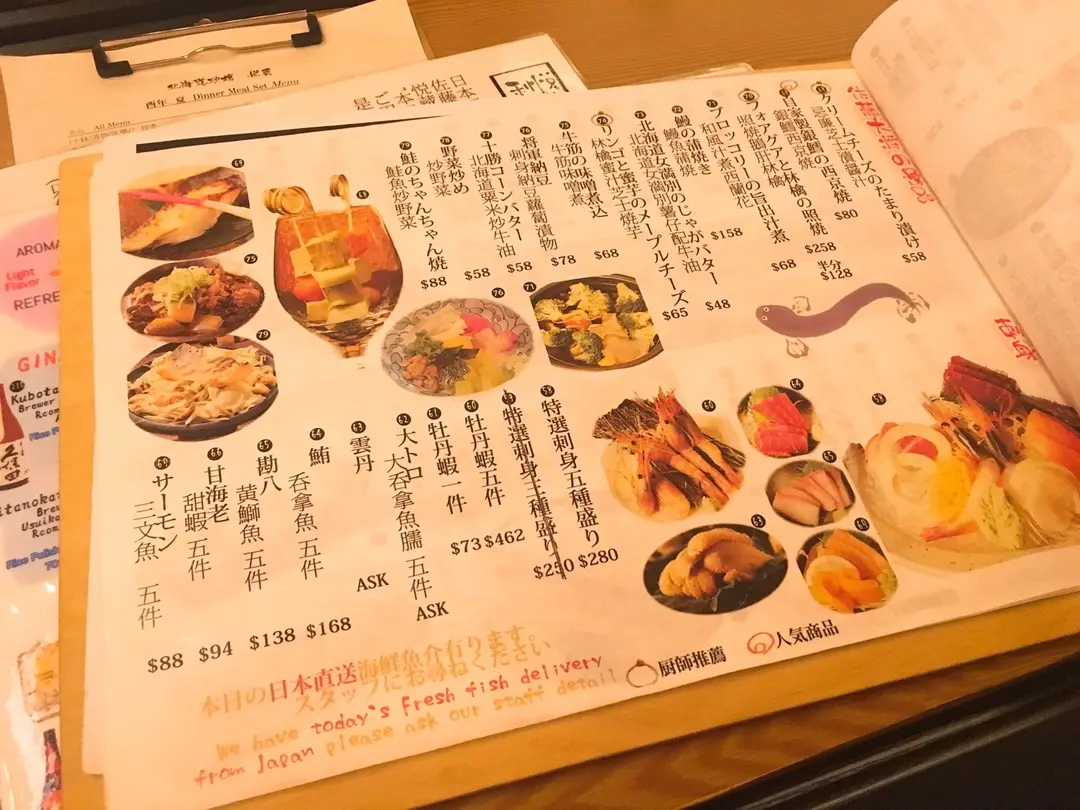 酉年 夏 Dinner Meal Set Menu
All Menu
日本
佐藤
悦
本
ご
是
AROMA
Light
Flavor
REFRE
GIN
Kubota
Brewer
Rcom
久保田
itanokaz
Brew
Usuika
Rcom
クリームチーズのたまり漬け
忌廉芝士漬醬汁
$58
自家製銀鱈の西京焼
銀鱈西京焼
$80
フォアグラと林檎の照焼
照焼鵝肝林檎
$258
半分
$128
70
ブロッコリーの旨出汁煮
和風汁煮西蘭花
$68
71
鰻の蒲焼き
鰻魚蒲焼
$158
72
北海道女満別のじゃがバター
北海道女満別薯仔配牛油
$48
73
リンゴと蜜芋のメープルチーズ
林檎蜜汁芝士焼芋
$65
74
牛筋の味噌煮込
牛筋味噌煮
$68
75
将軍納豆
刺身納豆蘿蔔漬物
$78
76
十勝コーンバター
北海道粟米炒牛油
$58
77
野菜炒め
炒野菜
$58
78
鮭のちゃんちゃん焼
鮭魚炒野菜
$88
79
69
68
75
79
76
71
58
特選刺身五種盛り
$280
59
特選刺身三種盛り
$250
60
牡丹蝦 五件
$462
61
牡丹蝦 一件
$73
62
大トロ
大吞拿魚腩 五件
ASK
63
雲丹
ASK
64
鮪
吞拿魚 五件
$168
65
勘八
黄鰤魚 五件
$138
66
甘海老
甜蝦 五件
$94
サーモン
三文魚 五件
$88
60
64
65
58
63
本日の日本直送海鮮魚介有ります
スタッフにお尋ねください
We have today's Fresh fish delivery
from Japan please ask our staff detail
厨師推薦
人気商品